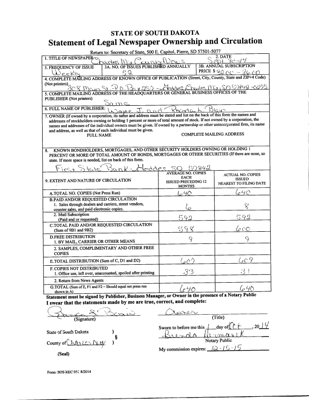 STATE OF SOUTH DAKOTA
Statement of Legal Newspaper Ownership and Circulation
Return to: Secretary of State, 500 E. Capitol, Pierre, SD 57501-5077
1. TITLE OF NEWSPAPER
2. DATE
3. FREQUENCY OF ISSUE
3A. NO. OF ISSUES PUBLISHED ANNUALLY
3B. ANNUAL SUBSCRIPTION
PRICE $
4. COMPLETE MAILING ADDRESS OF KNOWN OFFICE OF PUBLICATION (Street, City, County, State and ZIP+4 Code)
(Not printers)
5. COMPLETE MAILING ADDRESS OF THE HEADQUARTERS OR GENERAL BUSINESS OFFICES OF THE
PUBLISHER (Not printer)
Same
6. FULL NAME OF PUBLISHER
7. OWNER (If owned by a corporation, its name and address must be stated and on the back of this form the names and
addresses of stockholders owning or holding 1 percent or more of total amount of stock. If not owned by a corporation, the
names and addresses of the individual owners must be given. If owned by a partnership or other unincorporated firm, its name
and address, as well as that of each individual must be given.
FULL NAME
COMPLETE MAILING ADDRESS
8. KNOWN BONDHOLDERS, MORTGAGEES, AND OTHER SECURITY HOLDERS OWNING OR HOLDING 1
PERCENT OR MORE OF TOTAL AMOUNT OF BONDS, MORTGAGES OR OTHER SECURITIES (If there are none, so
state. If more space is needed, list on back of this form.
First State Bank
9. EXTENT AND NATURE OF CIRCULATION
AVERAGE NO. COPIES
EACH
ISSUED PRECEDING 12
MONTHS
ACTUAL NO. COPIES
ISSUED
NEAREST TO FILING DATE
A. TOTAL NO. COPIES (Net Press Run)
640 640
B. PAID AND/OR REQUESTED CIRCULATION
1. Sales through dealers and carriers, street vendors,
counter sales, and paid electronic copies.
6 8
2. Mail Subscription
(Paid and or requested)
592 592
C. TOTAL PAID AND/OR REQUESTED CIRCULATION
(Sum of 9B1 and 9B2)
598 600
D. FREE DISTRIBUTION
1. BY MAIL, CARRIER OR OTHER MEANS
9 9
2. SAMPLES, COMPLIMENTARY AND OTHER FREE
COPIES
E. TOTAL DISTRIBUTION (Sum of C, D1 and D2)
607 609
F. COPIES NOT DISTRIBUTED
1. Office use, left over, unaccounted, spoiled after printing
33 31
2. Return from News Agents
G. TOTAL (Sum of E, F1 and F2 - Should equal net press run
shown in A)
640 640
Statement must be signed by Publisher, Business Manager, or Owner in the presence of a Notary Public
I swear that the statements made by me are true, correct, and complete:
(Signature)
Owner
(Title)
State of South Dakota )
§
County of )
Sworn to before me this day of 20
Notary Public
My commission expires: 12-15-15
(Seal)